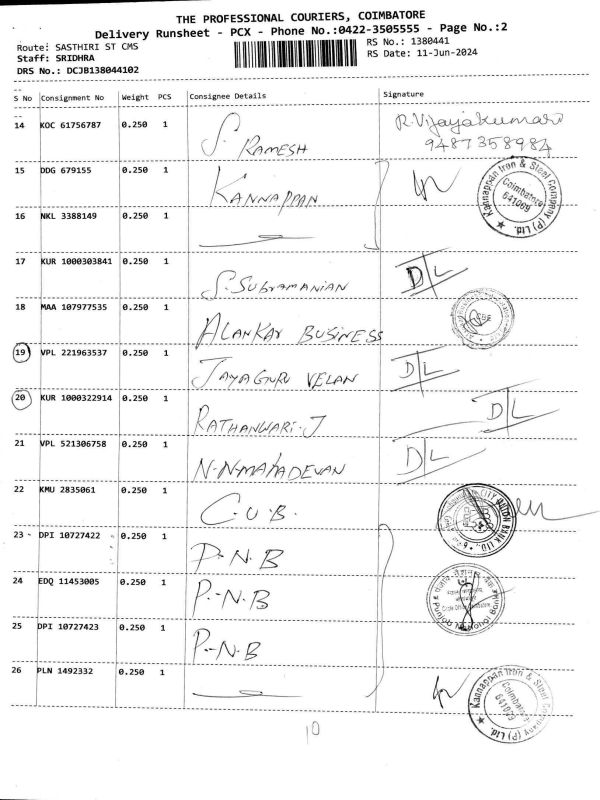 THE PROFESSIONAL COURIERS, COIMBATORE
Delivery Runsheet - PCX - Phone No.:0422-3505555 - Page No.:2
Route: SASTHIRI ST CMS
RS No.: 1380441
Staff: SRIDHRA
RS Date: 11-Jun-2024
DRS No.: DCJB138044102
S No Consignment No Weight PCS Consignee Details Signature
14 KOC 61756787 0.250 1 S. RAMESH R.Vijayakumari
9487358984
15 DDG 679155 0.250 1 KANNAPPAN
Kannappan Iron & Steel Company (P) Ltd.
Coimbatore
641009
16 NKL 3388149 0.250 1
17 KUR 1000303841 0.250 1 S.SUBRAMANIAN D/L
18 MAA 107977535 0.250 1 ALANKAR BUSINESS
19 VPL 221963537 0.250 1 JAYAGURU VELAN D/L
20 KUR 1000322914 0.250 1 RATHANWARI.J D/L
21 VPL 521306758 0.250 1 N.N.MAHADEVAN D/L
22 KMU 2835061 0.250 1 C.U.B.
CITY UNION BANK LTD.
23 DPI 10727422 0.250 1 P.N.B
24 EDQ 11453005 0.250 1 P.N.B
Punjab National Bank
25 DPI 10727423 0.250 1 P.N.B
26 PLN 1492332 0.250 1
Kannappan Iron & Steel Company (P) Ltd.
Coimbatore
641009
10